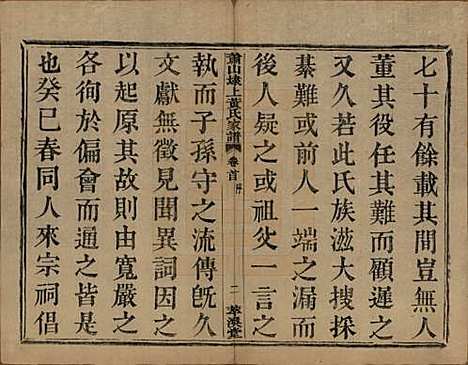 七十有餘載其間豈無人
董其役任其難而顧遲之
又久若此氏族滋大搜採
綦難或前人一端之漏而
後人疑之或祖父一言之
蕭山埭上黃氏家譜
卷首
序
二
萃渙堂
執而子孫守之流傳旣久
文獻無徵見聞異詞因之
以起原其故則由寬嚴之
各徇於偏會而通之皆是
也癸巳春同人來宗祠倡